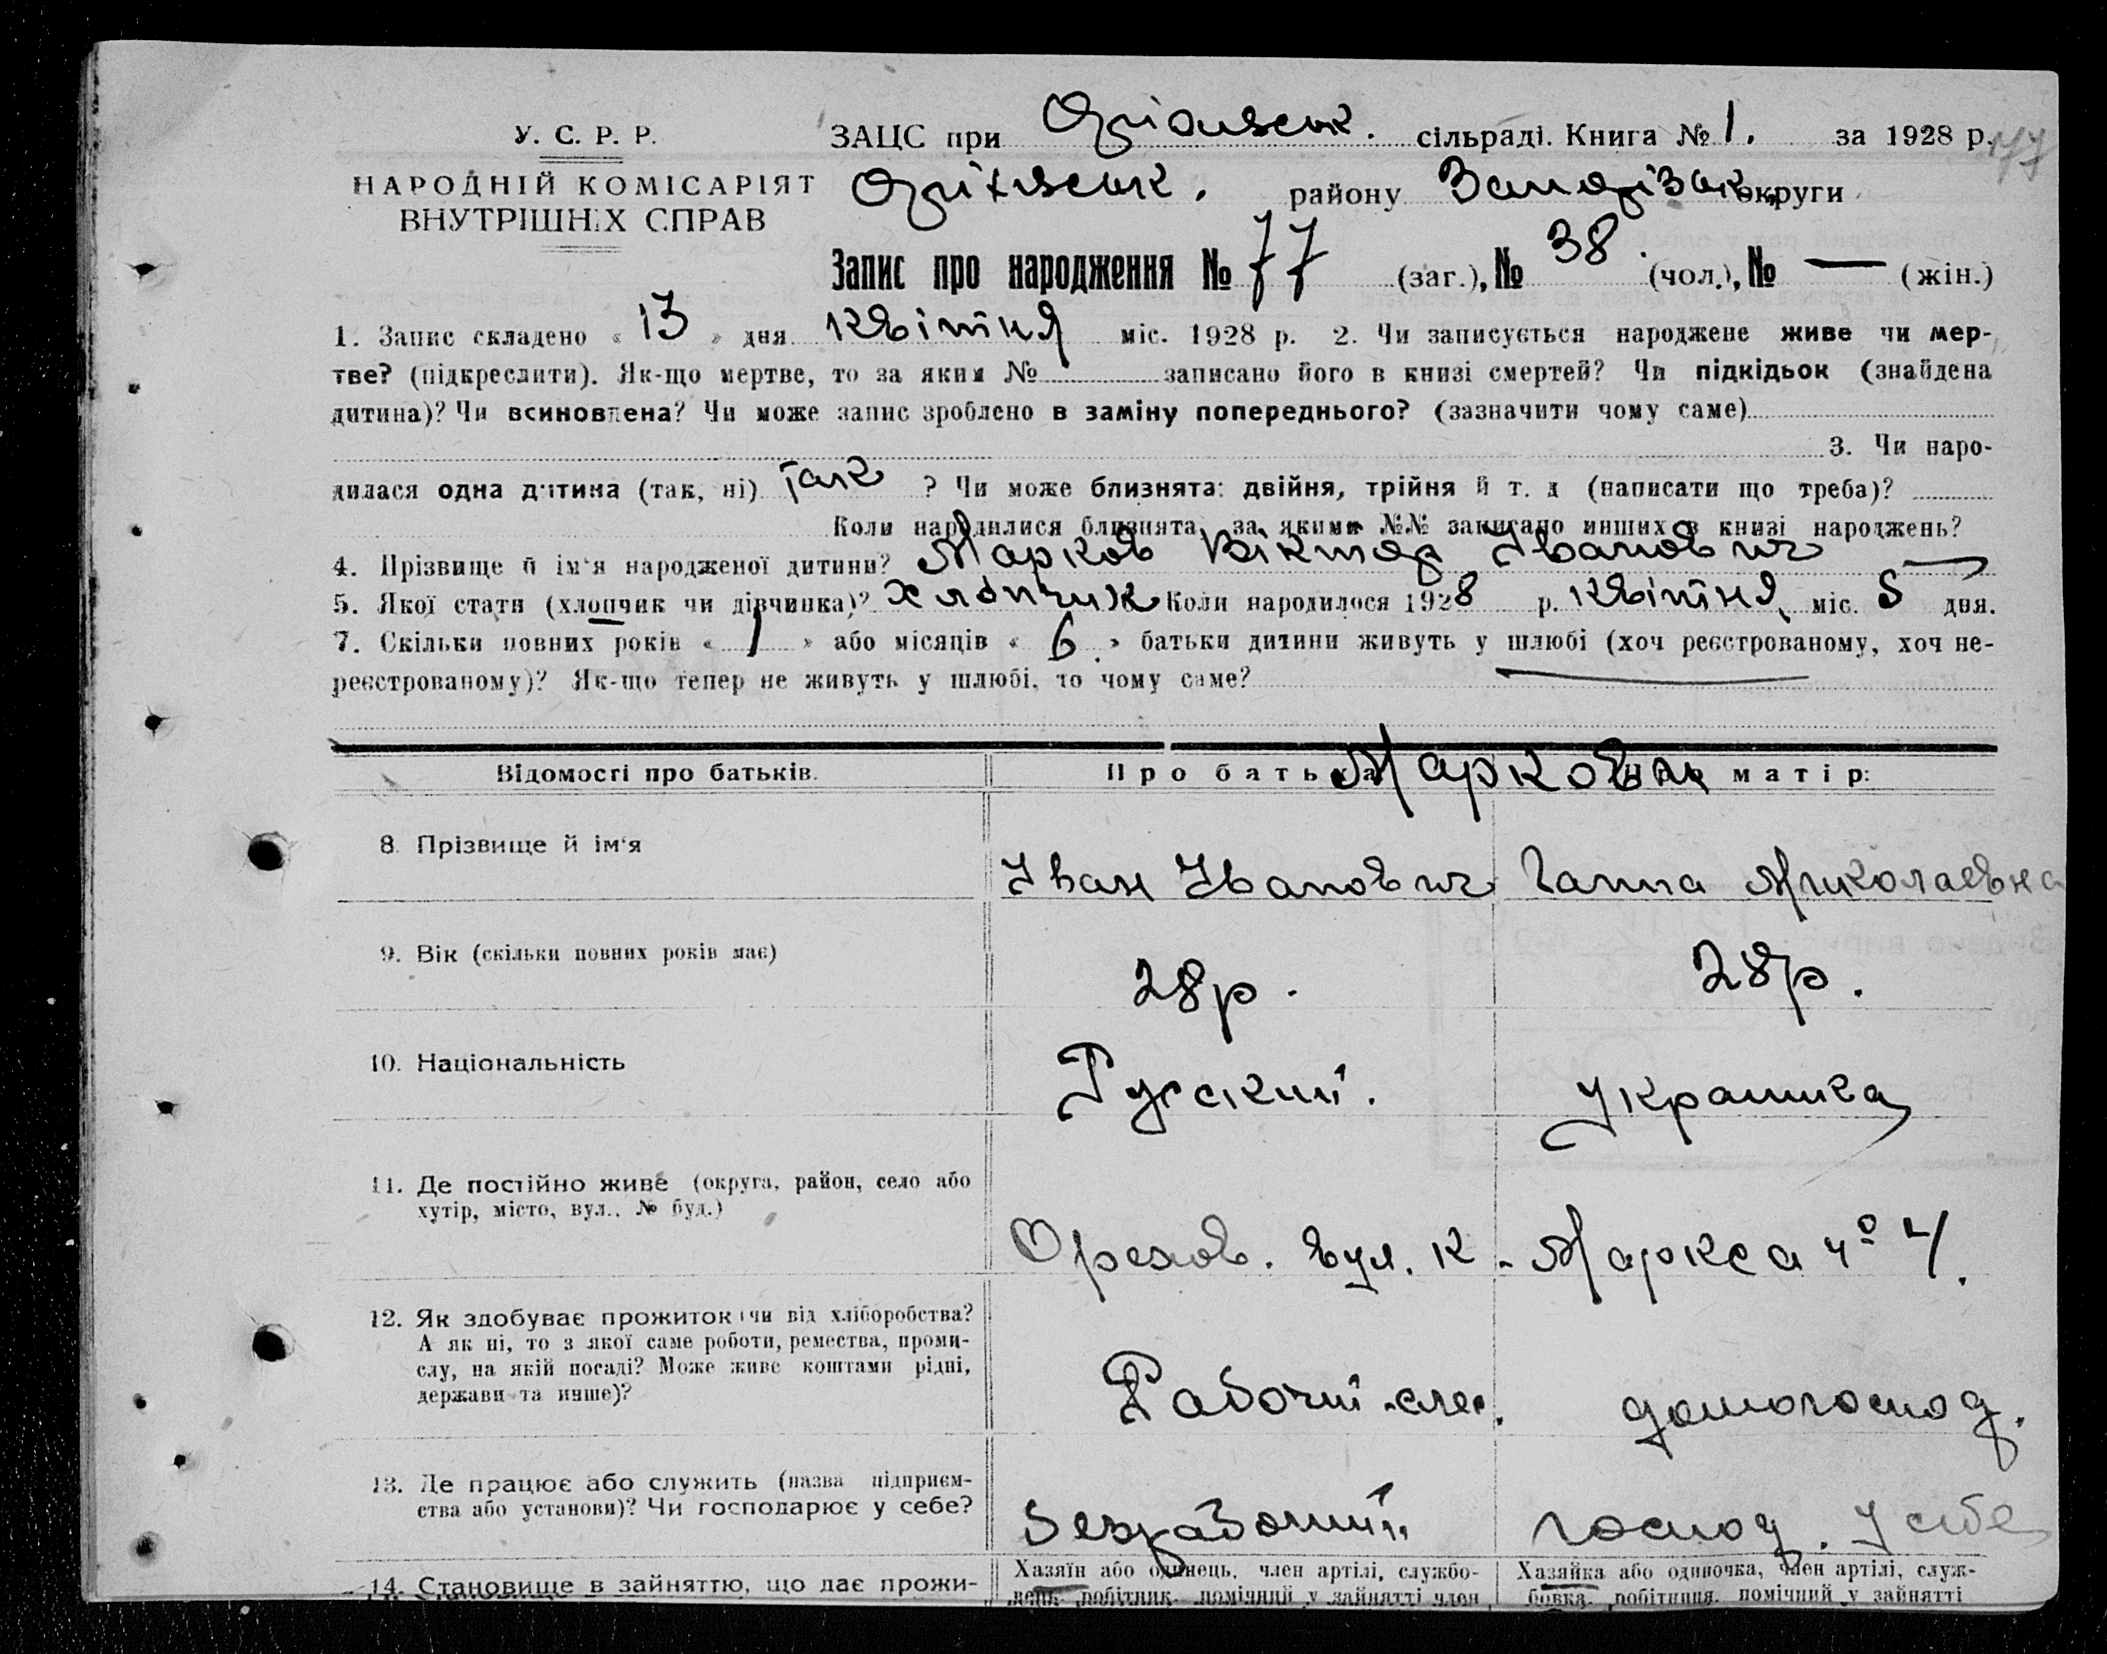 У. С. Р. Р.
НАРОДНІЙ КОМІСАРІЯТ
ВНУТРІШНІХ СПРАВ
ЗАЦС при Оріхівськ. сільраді. Книга № 1. за 1928 р. 77
Оріхівськ. району Запорізьк. округи
Запис про народження № 77 (заг.), № 38. (чол.), № — (жін.)
1. Запис складено « 13 » дня квітня міс. 1928 р. 2. Чи записується народжене живе чи мер-
тве? (підкреслити). Як-що мертве, то за яким № записано його в книзі смертей? Чи підкідьок (знайдена
дитина)? Чи всиновлена? Чи може запис зроблено в заміну попереднього? (зазначити чому саме)
3. Чи наро-
дилася одна дитина (так, ні) так ? Чи може близнята: двійня, трійня й т. д (написати що треба)?
Коли народилися близнята, за якими №№ записано инших в книзі народжень?
4. Прізвище й ім'я народженої дитини? Марков Віктор Іванович
5. Якої стати (хлопчик чи дівчинка)? хлопчик Коли народилося 1928 р. квітня міс. 5 дня.
7. Скільки повних років « 1 » або місяців « 6 » батьки дитини живуть у шлюбі (хоч реєстрованому, хоч не-
реєстрованому)? Як-що тепер не живуть у шлюбі, то чому саме?
Відомості про батьків. Про батька: Про матір:
Маркови
8. Прізвище й ім'я Іван Іванович Ганна Миколаевна
9. Вік (скільки повних років має) 28 р. 28 р.
10. Національність Русский. Украинка
11. Де постійно живе (округа, район, село або
хутір, місто, вул., № буд.)
Орехов. вул. К. Маркса № 4.
12. Як здобуває прожиток чи від хліборобства?
А як ні, то з якої саме роботи, ремества, проми-
слу, на якій посаді? Може живе коштами рідні,
держави та инше)?
Рабочий-слес. домогоспод.
13. Де працює або служить (назва підприєм-
ства або установи)? Чи господарює у себе?
Безработний господ. у себе
14. Становище в зайняттю, що дає прожи-
Хазяїн або одинець, член артілі, службо-
вець, робітник, помічний у зайнятті член
Хазяйка або одиночка, член артілі, служ-
бовка, робітниця, помічний у зайнятті